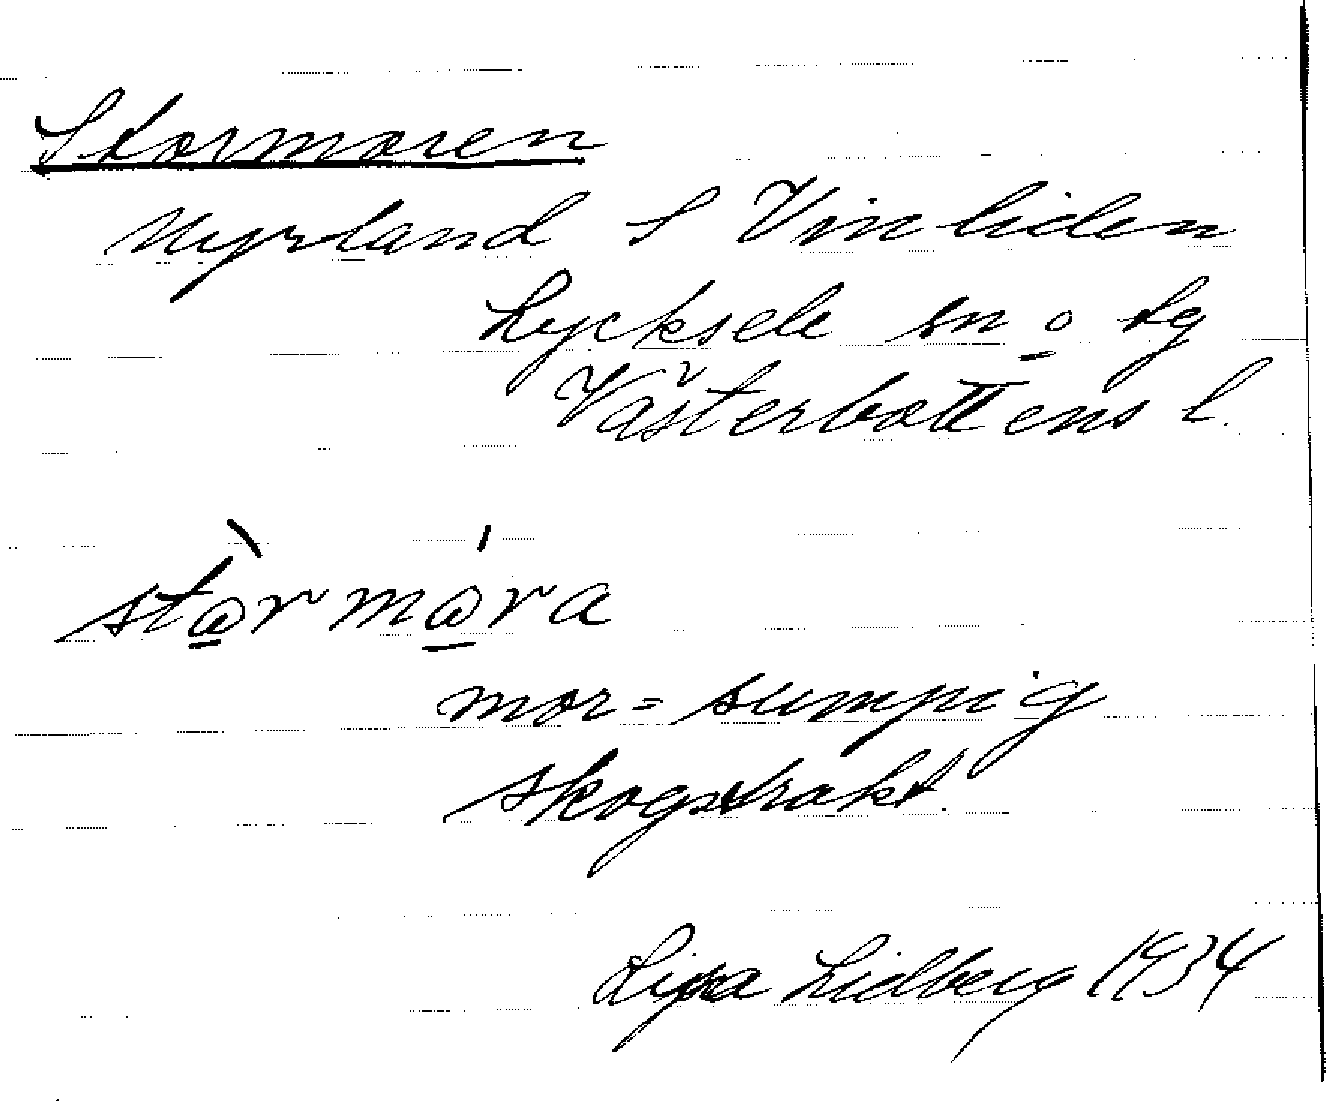 Stormoren
Myrland S Vinliden
Lycksele sn o tg
Västerbottens l.
stòrmóra
mor = sumpig
skogstrakt.
Lidberg 1934